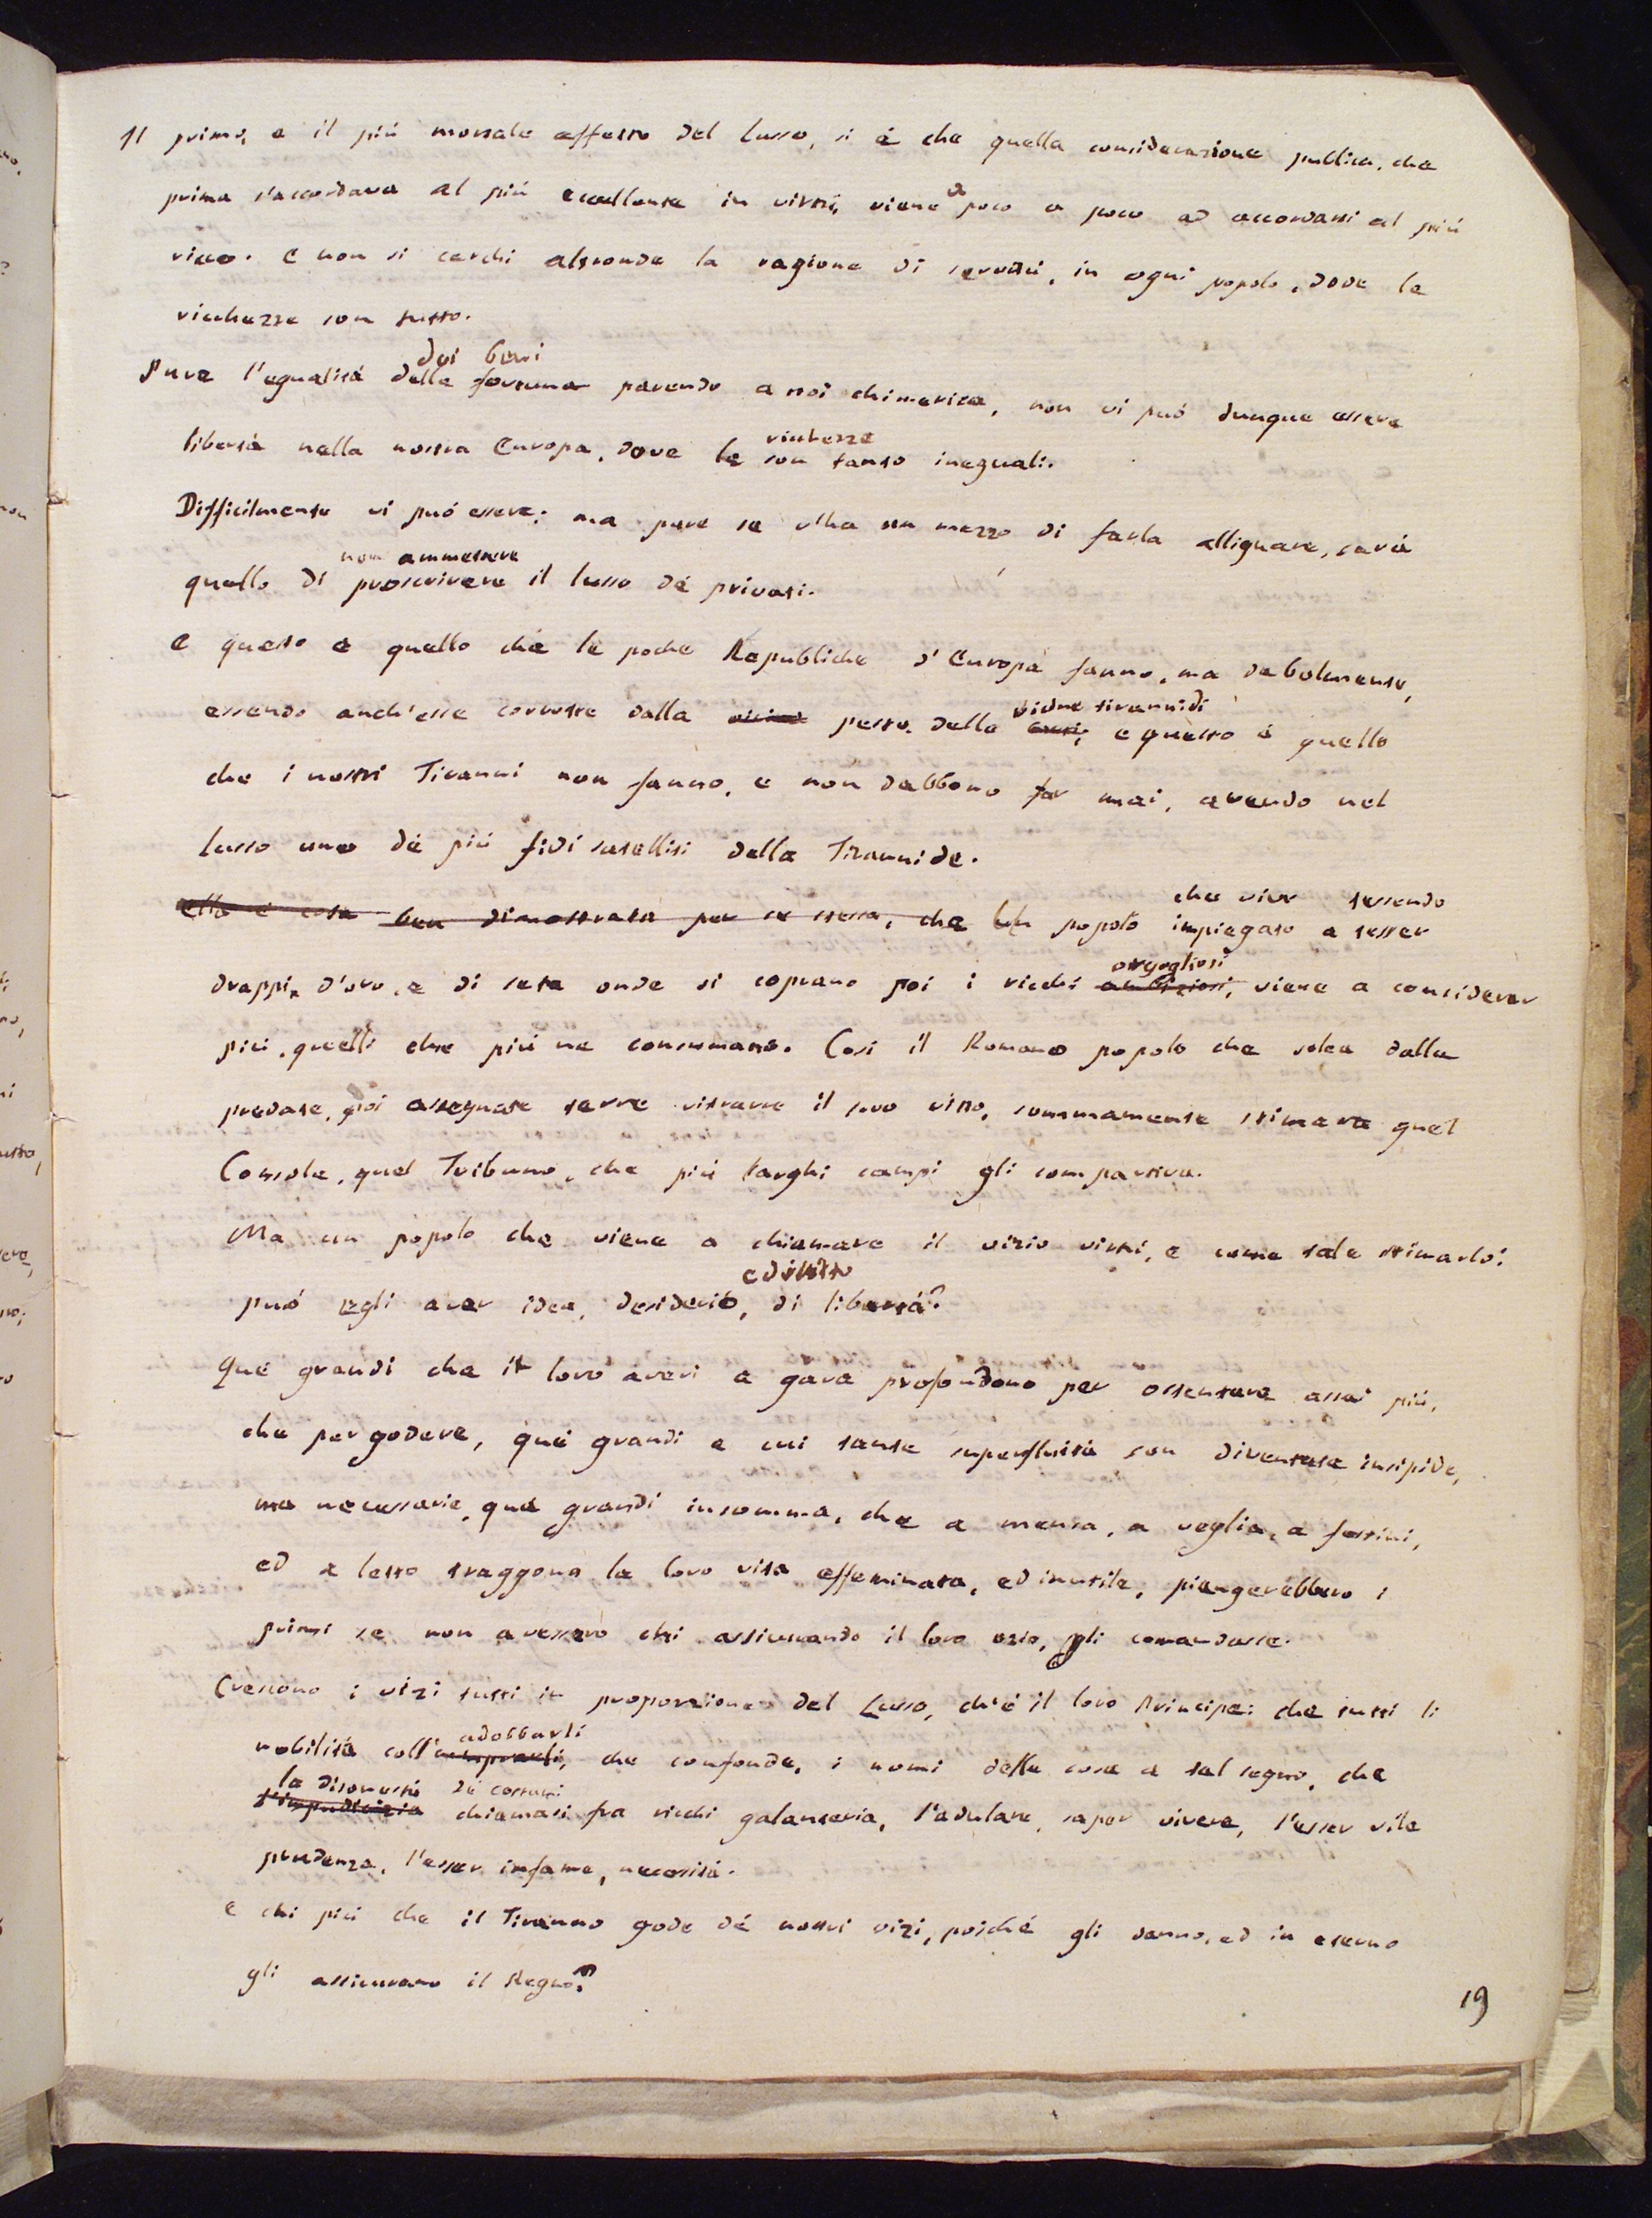 Il primo, e il più mortale effetto del Lusso, si è che quella considerazione publica, che
prima s'accordava al più eccellente in virtù, viene a poco a poco ad accordarsi al più
ricco. e non si cerchi altronde la ragione di servitù, in ogni popolo, dove le
ricchezze son tutto.
dei beni
Pure l'egualità della fortuna parendo a noi chimerica, non vi può dunque essere
ricchezze
libertà nella nostra Europa, dove le son tanto ineguali.
Difficilmente vi può essere: ma pure se v'ha un mezzo di farla allignare, sarà
non ammettere
quello di proscrivere il lusso dé privati.
e questo è quello che le poche Republiche d'Europa fanno, ma debolmente,
vicine tirannidi
essendo anch'esse corrotte dalla peste della e questo è quello
che i nostri Tiranni non fanno, e non debbono far mai, avendo nel
lusso uno dé più fidi satelliti della Tirannide.
che vive tessendo
ella è cosa ben dimostrata per se stessa, che Un popolo impiegato a tesser
orgogliosi
drappi d'oro, e di seta onde si coprano poi i ricchi ambiziosi, viene a considerar
più quelli che più ne consumano. Così il Romano popolo che solea dalle
predate, poi assegnate terre ritrarre il suo vitto, sommamente stimava quel
Console, quel Tribuno, che più larghi campi gli compartiva.
Ma un popolo che viene a chiamare il vizio virtù, e come tale stimarlo:
e diritto
può egli aver idea, desiderio, di libertà?
Qué grandi che il loro averi a gara profondono per ostentare assai più,
che per godere, qué grandi a cui tante superfluità son diventate insipide,
ma necessarie, qué grandi insomma, che a mensa, a veglia, a festini,
ed a letto traggono la loro vita effeminata, ed inutile, piangerebbero i
primi se non avessero chi assicurando il loro ozio, gli comandasse.
Crescono i vizi tutti in proporzione del Lusso, ch'è il loro Principe: che tutti li
adobbarli
nobilità coll' che confonde, i nomi delle cose a tal segno, che
la disonestà dé costumi
l'impudicizia chiamasi fra ricchi galanteria, l'adulare, saper vivere, l'esser vile
prudenza, l'esser infame, necessità.
e chi più che il Tiranno gode dé nostri vizi, poiché gli danno, ed in eterno
gli assicurano il Regno?
19